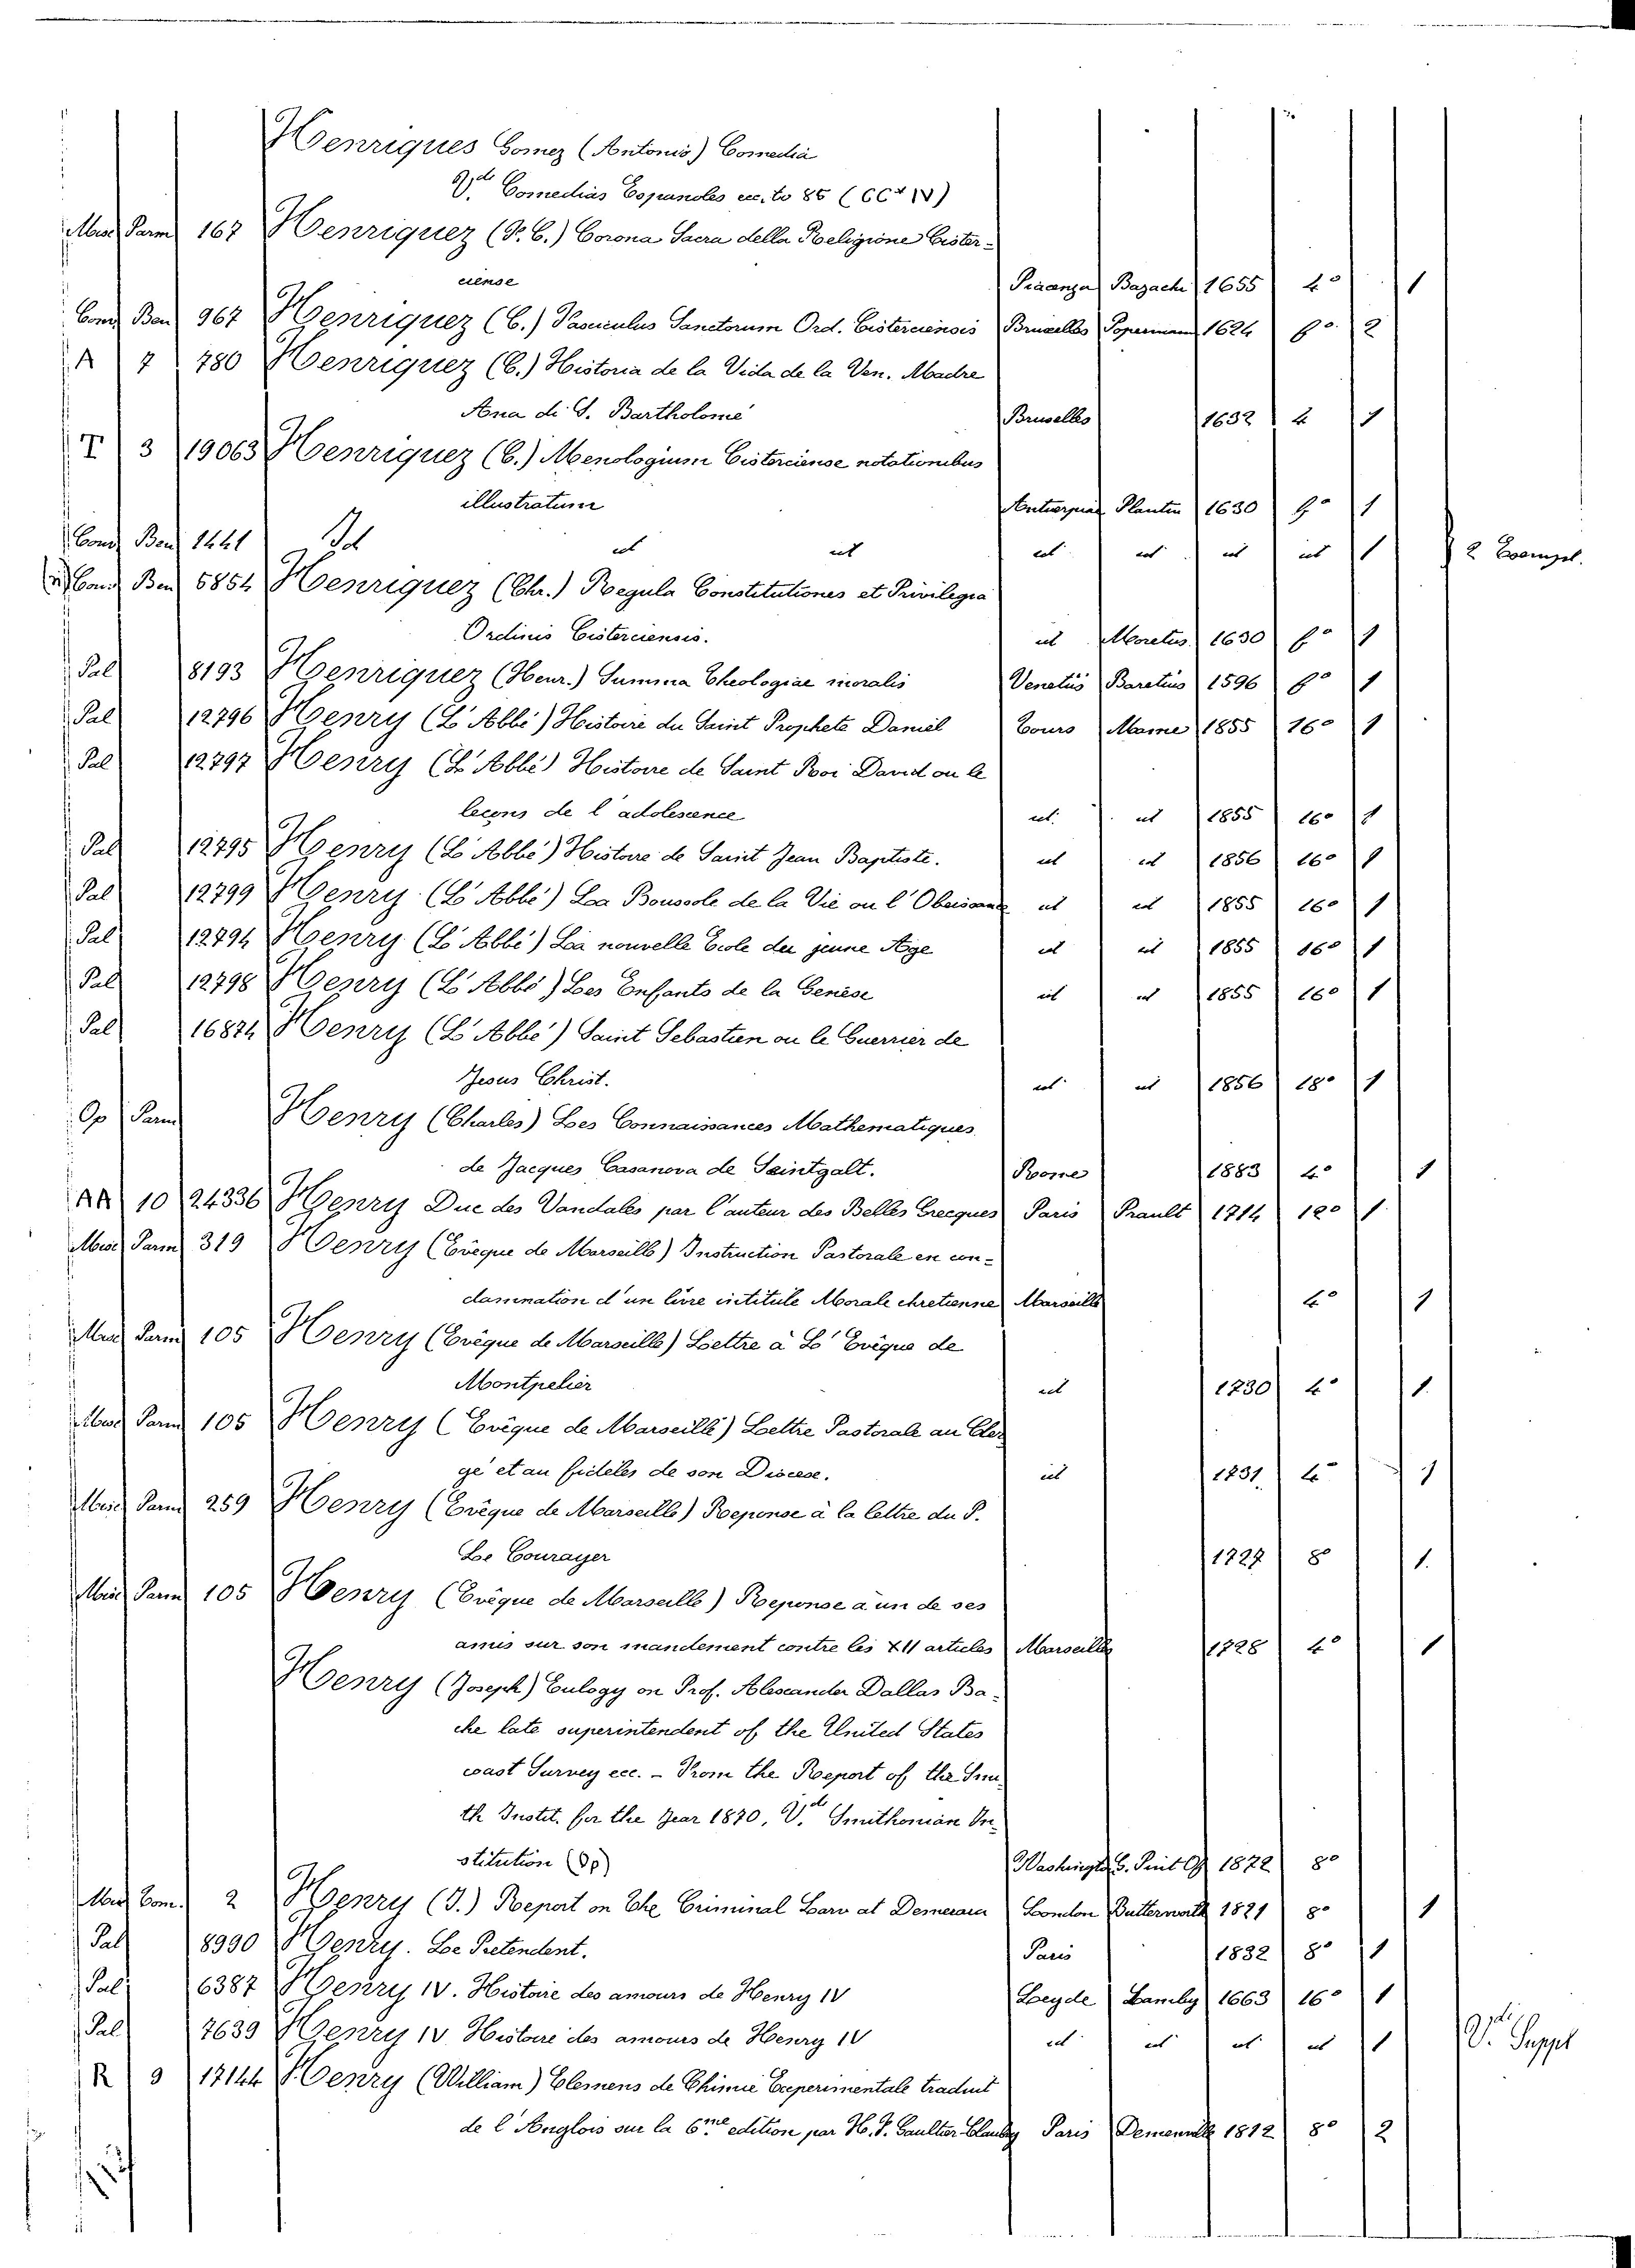 Henriques Gomez (Antonio) Comedia
V.de Comedias Espanoles ecc. to 85 (CC* IV)
Misc Parm 167 Henriquez (P. C.) Corona Sacra della Religione Cister-
ciense Piacenza Bazachi 1655 4° 1
Com Ben 967 Henriquez (C.) Fasciculus Sanctorum Ord. Cisterciensis Bruxelles Peperman 1624 f° 2
A 7 780 Henriquez (C.) Historia de la Vida de la Ven. Madre
Ana di S. Bartholomé Bruxelles 1632 4 1
T 3 19063 Henriquez (C.) Menologium Cisterciense notationibus
illustratum Antuerpiae Plantin 1630 f° 1
Com Ben 1441 Id ut ut ut ut ut ut 1 2 Exempl.
Com Ben 5854 Henriquez (Chr.) Regula Constitutiones et Privilegia
Ordinis Cisterciensis. ut Moretus 1630 f° 1
Pal 8193 Henriquez (Henr.) Summa Theologiae moralis Venetiis Baretius 1596 f° 1
Pal 12796 Henry (L'Abbé) Histoire du Saint Prophete Daniel Tours Mame 1855 16° 1
Pal 12797 Henry (L'Abbé) Histoire de Saint Roi David ou le
leçons de l'adolescence ut. ut 1855 16° 1
Pal 12795 Henry (L'Abbé) Histoire de Saint Jean Baptiste. ut ut 1856 16° 1
Pal 12799 Henry (L'Abbé) La Boussole de la Vie ou l'Obeisance ut ut 1855 16° 1
Pal 12794 Henry (L'Abbé) La nouvelle Ecole du jeune Age ut ut 1855 16° 1
Pal 12798 Henry (L'Abbé) Les Enfants de la Genèse ut ut 1855 16° 1
Pal 16874 Henry (L'Abbé) Saint Sebastien ou le Guerrier de
Jesus Christ. ut ut 1856 18° 1
Op Parm Henry (Charles) Les Connaissances Mathematiques
de Jacques Casanova de Seintgalt. Rome 1883 4° 1
AA 10 24336 Henry Duc des Vandales par l'auteur des Belles Grecques Paris Prault 1714 12° 1
Misc Parm 319 Henry (Evêque de Marseille) Instruction Pastorale en con-
damnation d'un livre intitule Morale chretienne Marseille 4° 1
Misc Parm 105 Henry (Evêque de Marseille) Lettre à L'Evêque de
Montpelier ut 1730 4° 1
Misc Parm 105 Henry (Evêque de Marseille) Lettre Pastorale au Cler
gé et au fideles de son Diocese. ut 1731. 4° 1
Misc Parm 259 Henry (Evêque de Marseille) Reponse à la lettre du P.
Le Courayer 1727 8° 1.
Misc Parm 105 Henry (Evêque de Marseille) Reponse a un de ses
amis sur son mandement contre les XII articles Marseille 1728 4° 1
Henry (Joseph) Eulogy on Prof. Alexander Dallas Ba-
che late superintendent of the United States
coast Survey ecc. - From the Report of the Smi
th Instit. for the Year 1870. V.de Smithonian In-
stitution (Op) Washington 1872 8°
Misc Com. 2 Henry (J.) Report on The Criminal Law at Demerara London Butterworth 1821 8° 1
Pal 8990 Henry. Le Pretendent. Paris 1832 8° 1
Pal 6387 Henry IV. Histoire des amours de Henry IV Leyde Lamby 1663 16° 1
Pal 7639 Henry IV Histoire des amours de Henry IV ut ut ut ut 1 V.di Suppl
R 3 17144 Henry (William) Elemens de Chimie Experimentale traduit
de l'Anglois sur la 6me edition par H. F. Gaultier Claubry Paris Demonville 1812 8° 2